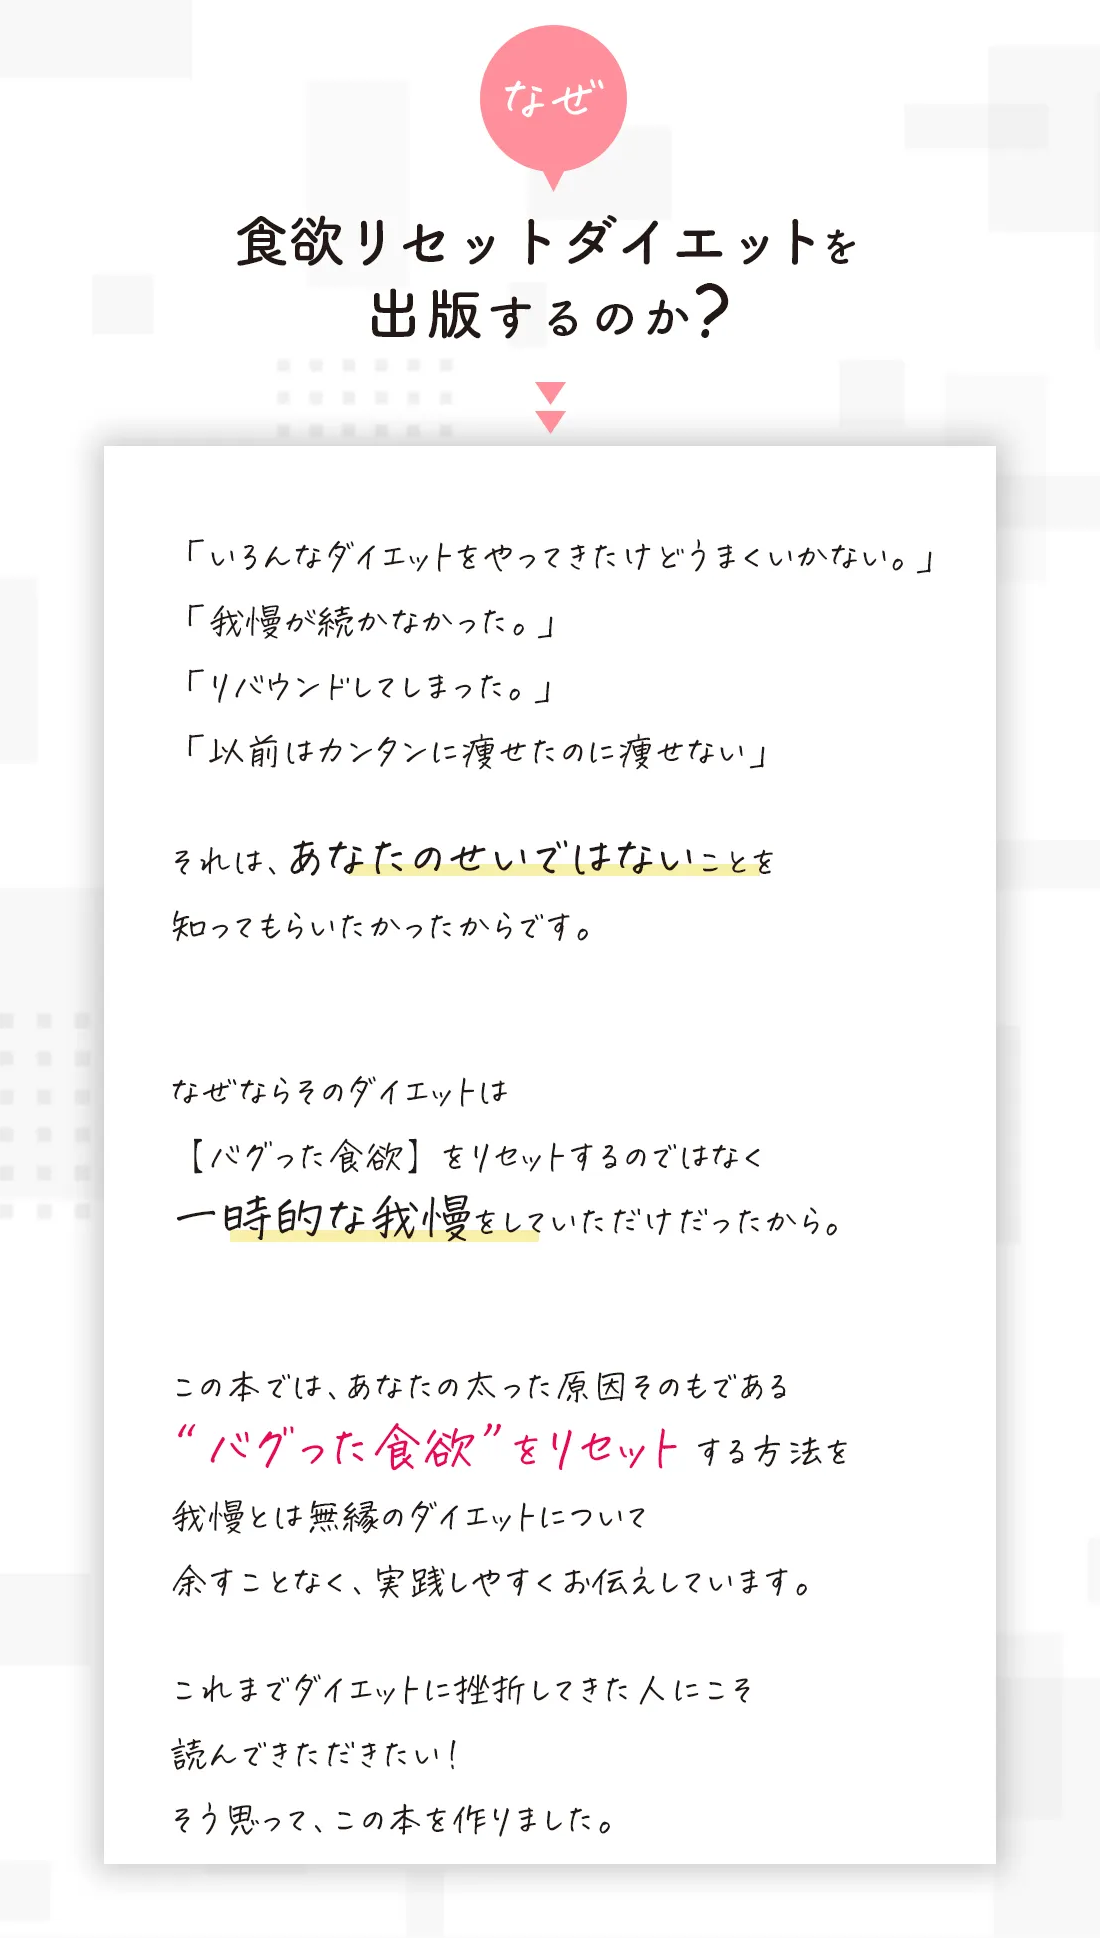 なぜ
食欲リセットダイエットを
出版するのか?
「いろんなダイエットをやってきたけどうまくいかない。」
「我慢が続かなかった。」
「リバウンドしてしまった。」
「以前はカンタンに痩せたのに痩せない」
それは、あなたのせいではないことを
知ってもらいたかったからです。
なぜならそのダイエットは
【バグった食欲】をリセットするのではなく
一時的な我慢をしていただけだったから。
この本では、あなたの太った原因そのもである
“バグった食欲”をリセットする方法を
我慢とは無縁のダイエットについて
余すことなく、実践しやすくお伝えしています。
これまでダイエットに挫折してきた人にこそ
読んできただきたい!
そう思って、この本を作りました。